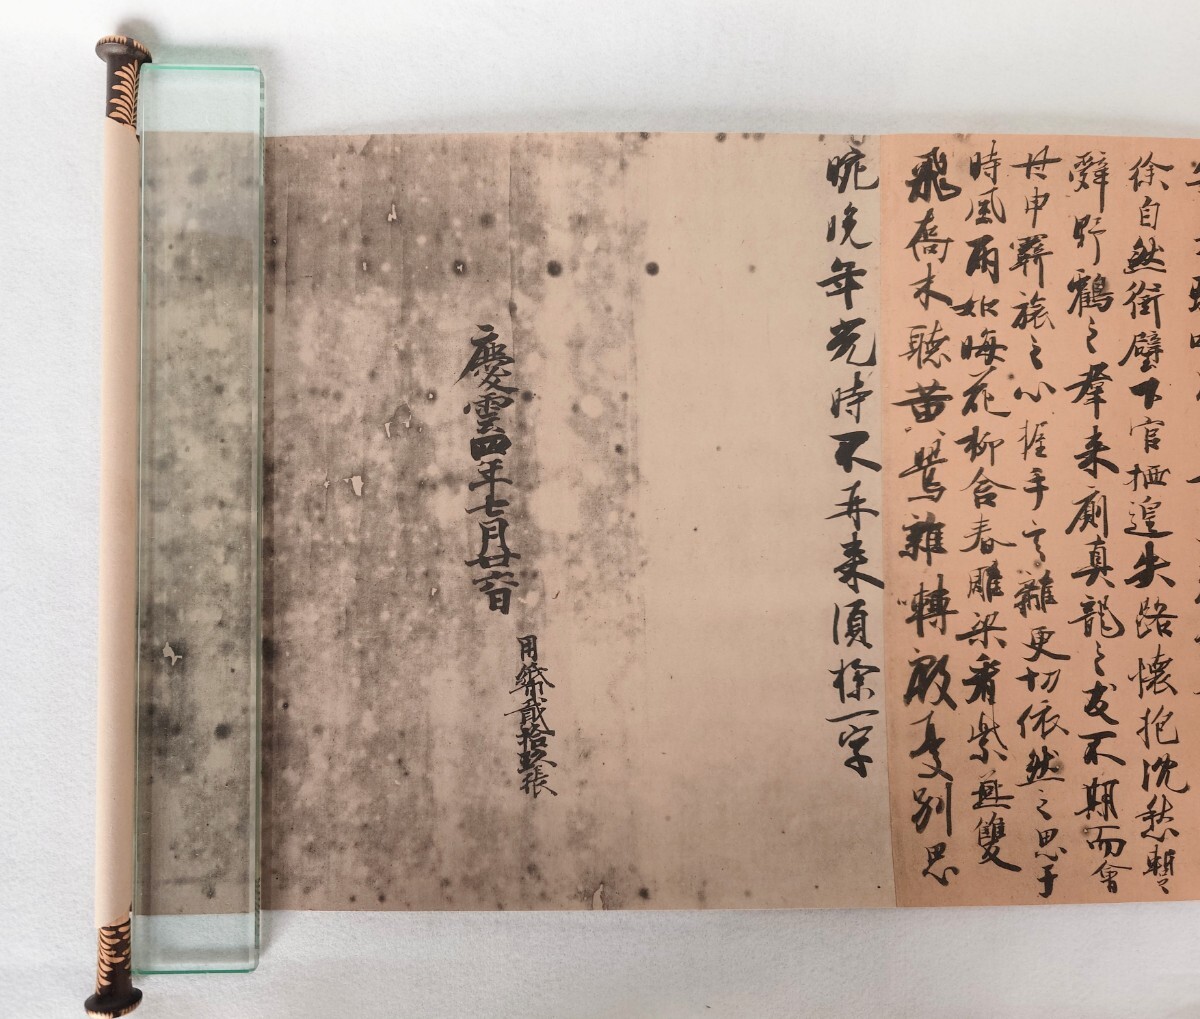 徐自然銜璧下官栖遑失路懷抱沈愁
辭野鶴之羣来廁真龍之友不期而會
甘申羇旅之心握手言離更切依然之思于
時風雨如晦花柳含春雕梁看紫燕雙
飛喬木聽黄鸎雜轉殷憂別思
晼晚年光時不再来須探一字
慶雲四年七月廿六日
用紙貳拾玖張